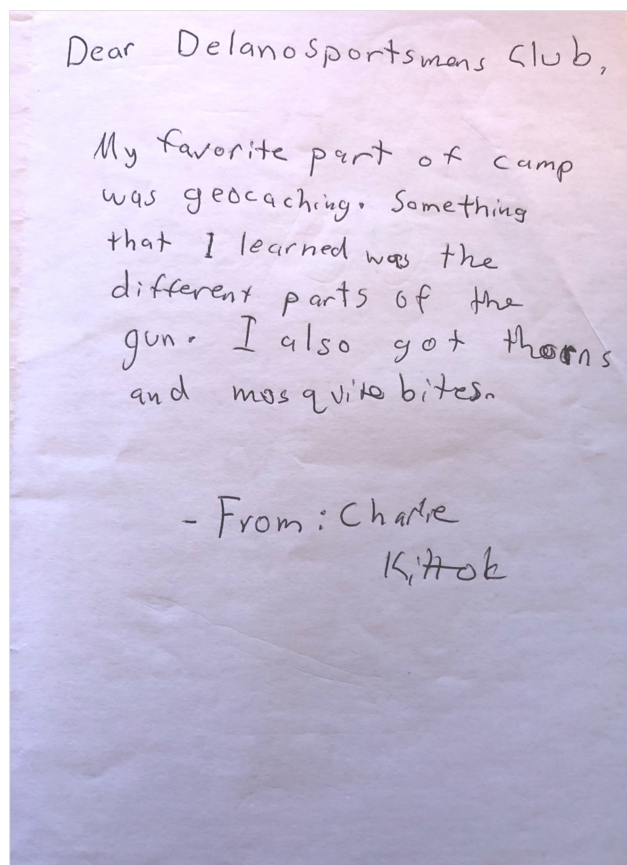 Dear Delano Sportsmens Club,
My favorite part of camp
was geocaching. Something
that I learned was the
different parts of the
gun. I also got thorns
and mosquito bites.
- From: Charlie
Kittok